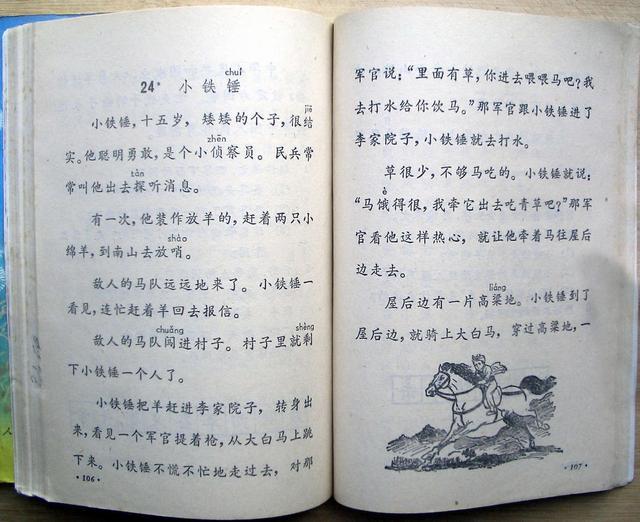 chuí
24* 小铁锤
jiē
小铁锤，十五岁，矮矮的个子，很结
zhēn
实。他聪明勇敢，是个小侦察员。民兵常
tàn
常叫他出去探听消息。
有一次，他装作放羊的，赶着两只小
shào
绵羊，到南山去放哨。
敌人的马队远远地来了。小铁锤一
看见，连忙赶着羊回去报信。
chuǎng shèng
敌人的马队闯进村子。村子里就剩
下小铁锤一个人了。
小铁锤把羊赶进李家院子，转身出
来，看见一个军官提着枪，从大白马上跳
下来。小铁锤不慌不忙地走过去，对那
·106·
军官说：“里面有草，你进去喂喂马吧？我
去打水给你饮马。”那军官跟小铁锤进了
李家院子，小铁锤就去打水。
草很少，不够马吃的。小铁锤就说：
è
“马饿得很，我牵它出去吃青草吧？”那军
官看他这样热心，就让他牵着马往屋后
边走去。
liáng
屋后边有一片高粱地。小铁锤到了
屋后边，就骑上大白马，穿过高粱地，一
·107·